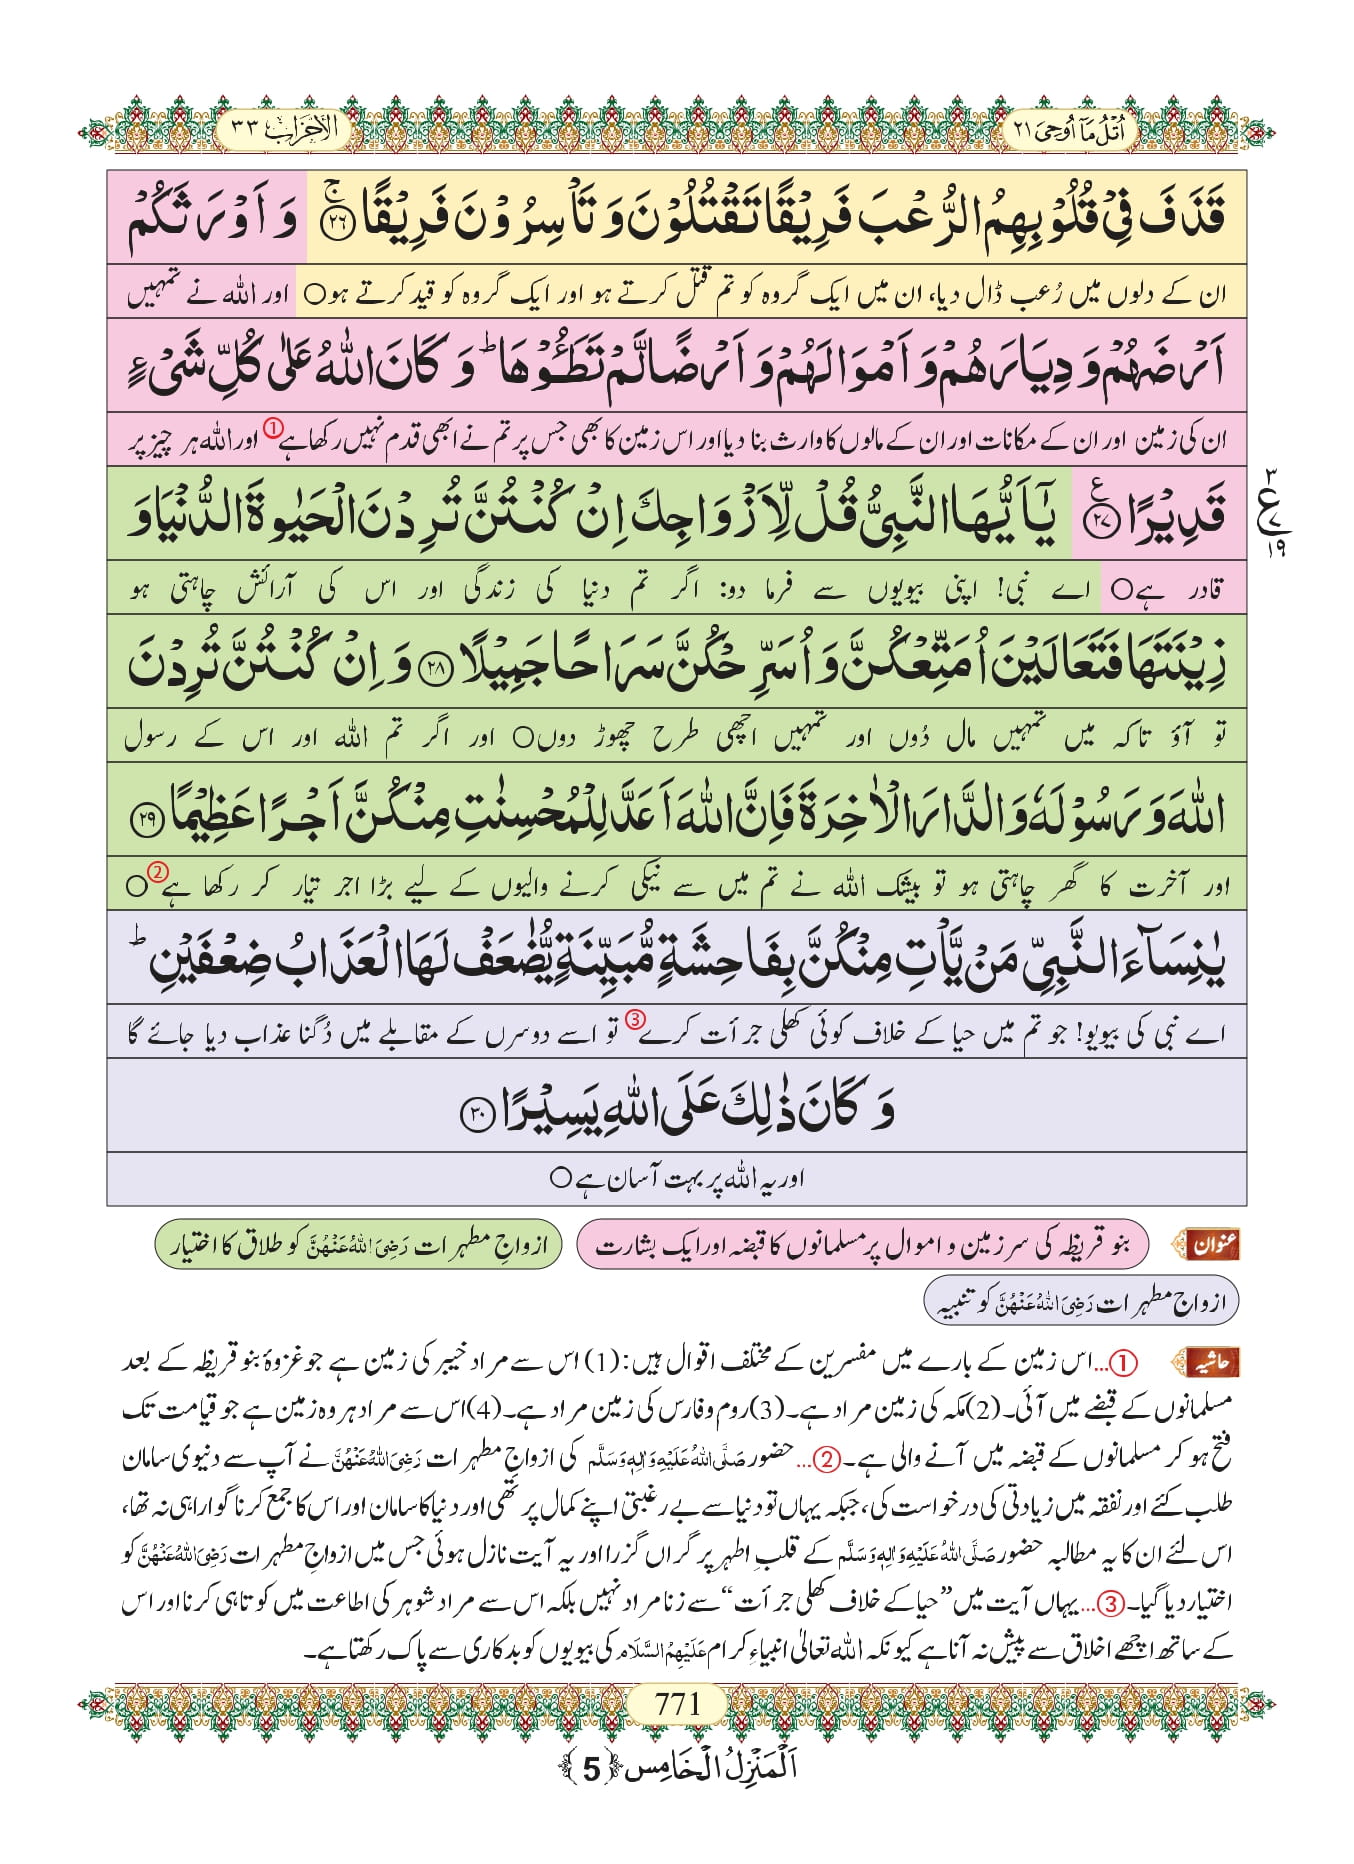 اُتْلُ مَاۤ اُوْحِیَ ۲۱
الاحزاب ۳۳
قَذَفَ فِیْ قُلُوْبِهِمُ الرُّعْبَ فَرِیْقًا تَقْتُلُوْنَ وَ تَاْسِرُوْنَ فَرِیْقًاۚ(۲۶) وَ اَوْرَثَكُمْ
ان کے دلوں میں رُعب ڈال دیا، ان میں ایک گروہ کو تم قتل کرتے ہو اور ایک گروہ کو قید کرتے ہو○ اور اللہ نے تمہیں
اَرْضَهُمْ وَ دِیَارَهُمْ وَ اَمْوَالَهُمْ وَ اَرْضًا لَّمْ تَطَـُٔوْهَاؕ-وَ كَانَ اللّٰهُ عَلٰى كُلِّ شَیْءٍ
ان کی زمین اور ان کے مکانات اور ان کے مالوں کا وارث بنا دیا اور اس زمین کا بھی جس پر تم نے ابھی قدم نہیں رکھا ہے① اور اللہ ہر چیز پر
قَدِیْرًا۠(۲۷) یٰۤاَیُّهَا النَّبِیُّ قُلْ لِّاَزْوَاجِكَ اِنْ كُنْتُنَّ تُرِدْنَ الْحَیٰوةَ الدُّنْیَا وَ
۳
ع
۷
۱۹
قادر ہے○ اے نبی! اپنی بیویوں سے فرما دو: اگر تم دنیا کی زندگی اور اس کی آرائش چاہتی ہو
زِیْنَتَهَا فَتَعَالَیْنَ اُمَتِّعْكُنَّ وَ اُسَرِّحْكُنَّ سَرَاحًا جَمِیْلًا(۲۸) وَ اِنْ كُنْتُنَّ تُرِدْنَ
تو آؤ تاکہ میں تمہیں مال دُوں اور تمہیں اچھی طرح چھوڑ دوں○ اور اگر تم اللہ اور اس کے رسول
اللّٰهَ وَ رَسُوْلَهٗ وَ الدَّارَ الْاٰخِرَةَ فَاِنَّ اللّٰهَ اَعَدَّ لِلْمُحْسِنٰتِ مِنْكُنَّ اَجْرًا عَظِیْمًا(۲۹)
اور آخرت کا گھر چاہتی ہو تو بیشک اللہ نے تم میں سے نیکی کرنے والیوں کے لیے بڑا اجر تیار کر رکھا ہے②○
یٰنِسَآءَ النَّبِیِّ مَنْ یَّاْتِ مِنْكُنَّ بِفَاحِشَةٍ مُّبَیِّنَةٍ یُّضٰعَفْ لَهَا الْعَذَابُ ضِعْفَیْنِؕ
اے نبی کی بیویو! جو تم میں حیا کے خلاف کوئی کھلی جرأت کرے③ تو اسے دوسرں کے مقابلے میں دُگنا عذاب دیا جائے گا
وَ كَانَ ذٰلِكَ عَلَى اللّٰهِ یَسِیْرًا(۳۰)
اور یہ اللہ پر بہت آسان ہے○
عنوان بنو قریظہ کی سرزمین و اموال پر مسلمانوں کا قبضہ اور ایک بشارت ازواجِ مطہرات رَضِیَ اللہُ عَنْہُنَّ کو طلاق کا اختیار
ازواجِ مطہرات رَضِیَ اللہُ عَنْہُنَّ کو تنبیہ
حاشیہ ①...اس زمین کے بارے میں مفسرین کے مختلف اقوال ہیں: (1) اس سے مراد خیبر کی زمین ہے جو غزوۂ بنو قریظہ کے بعد
مسلمانوں کے قبضے میں آئی۔ (2) مکہ کی زمین مراد ہے۔ (3) روم و فارس کی زمین مراد ہے۔ (4) اس سے مراد ہر وہ زمین ہے جو قیامت تک
فتح ہو کر مسلمانوں کے قبضہ میں آنے والی ہے۔ ②... حضور صَلَّی اللہُ عَلَیْہِ وَاٰلِہٖ وَسَلَّم کی ازواجِ مطہرات رَضِیَ اللہُ عَنْہُنَّ نے آپ سے دنیوی سامان
طلب کئے اور نفقہ میں زیادتی کی درخواست کی، جبکہ یہاں تو دنیا سے بے رغبتی اپنے کمال پر تھی اور دنیا کا سامان اور اس کا جمع کرنا گوارا ہی نہ تھا،
اس لئے ان کا یہ مطالبہ حضور صَلَّی اللہُ عَلَیْہِ وَاٰلِہٖ وَسَلَّم کے قلبِ اطہر پر گراں گزرا اور یہ آیت نازل ہوئی جس میں ازواجِ مطہرات رَضِیَ اللہُ عَنْہُنَّ کو
اختیار دیا گیا۔ ③... یہاں آیت میں ”حیا کے خلاف کھلی جرأت“ سے زنا مراد نہیں بلکہ اس سے مراد شوہر کی اطاعت میں کوتاہی کرنا اور اس
کے ساتھ اچھے اخلاق سے پیش نہ آنا ہے کیونکہ اللہ تعالیٰ انبیاءِ کرام عَلَیْہِمُ السَّلَام کی بیویوں کو بدکاری سے پاک رکھتا ہے۔
771
اَلْمَنْزِلُ الْخَامِس ﴿5﴾